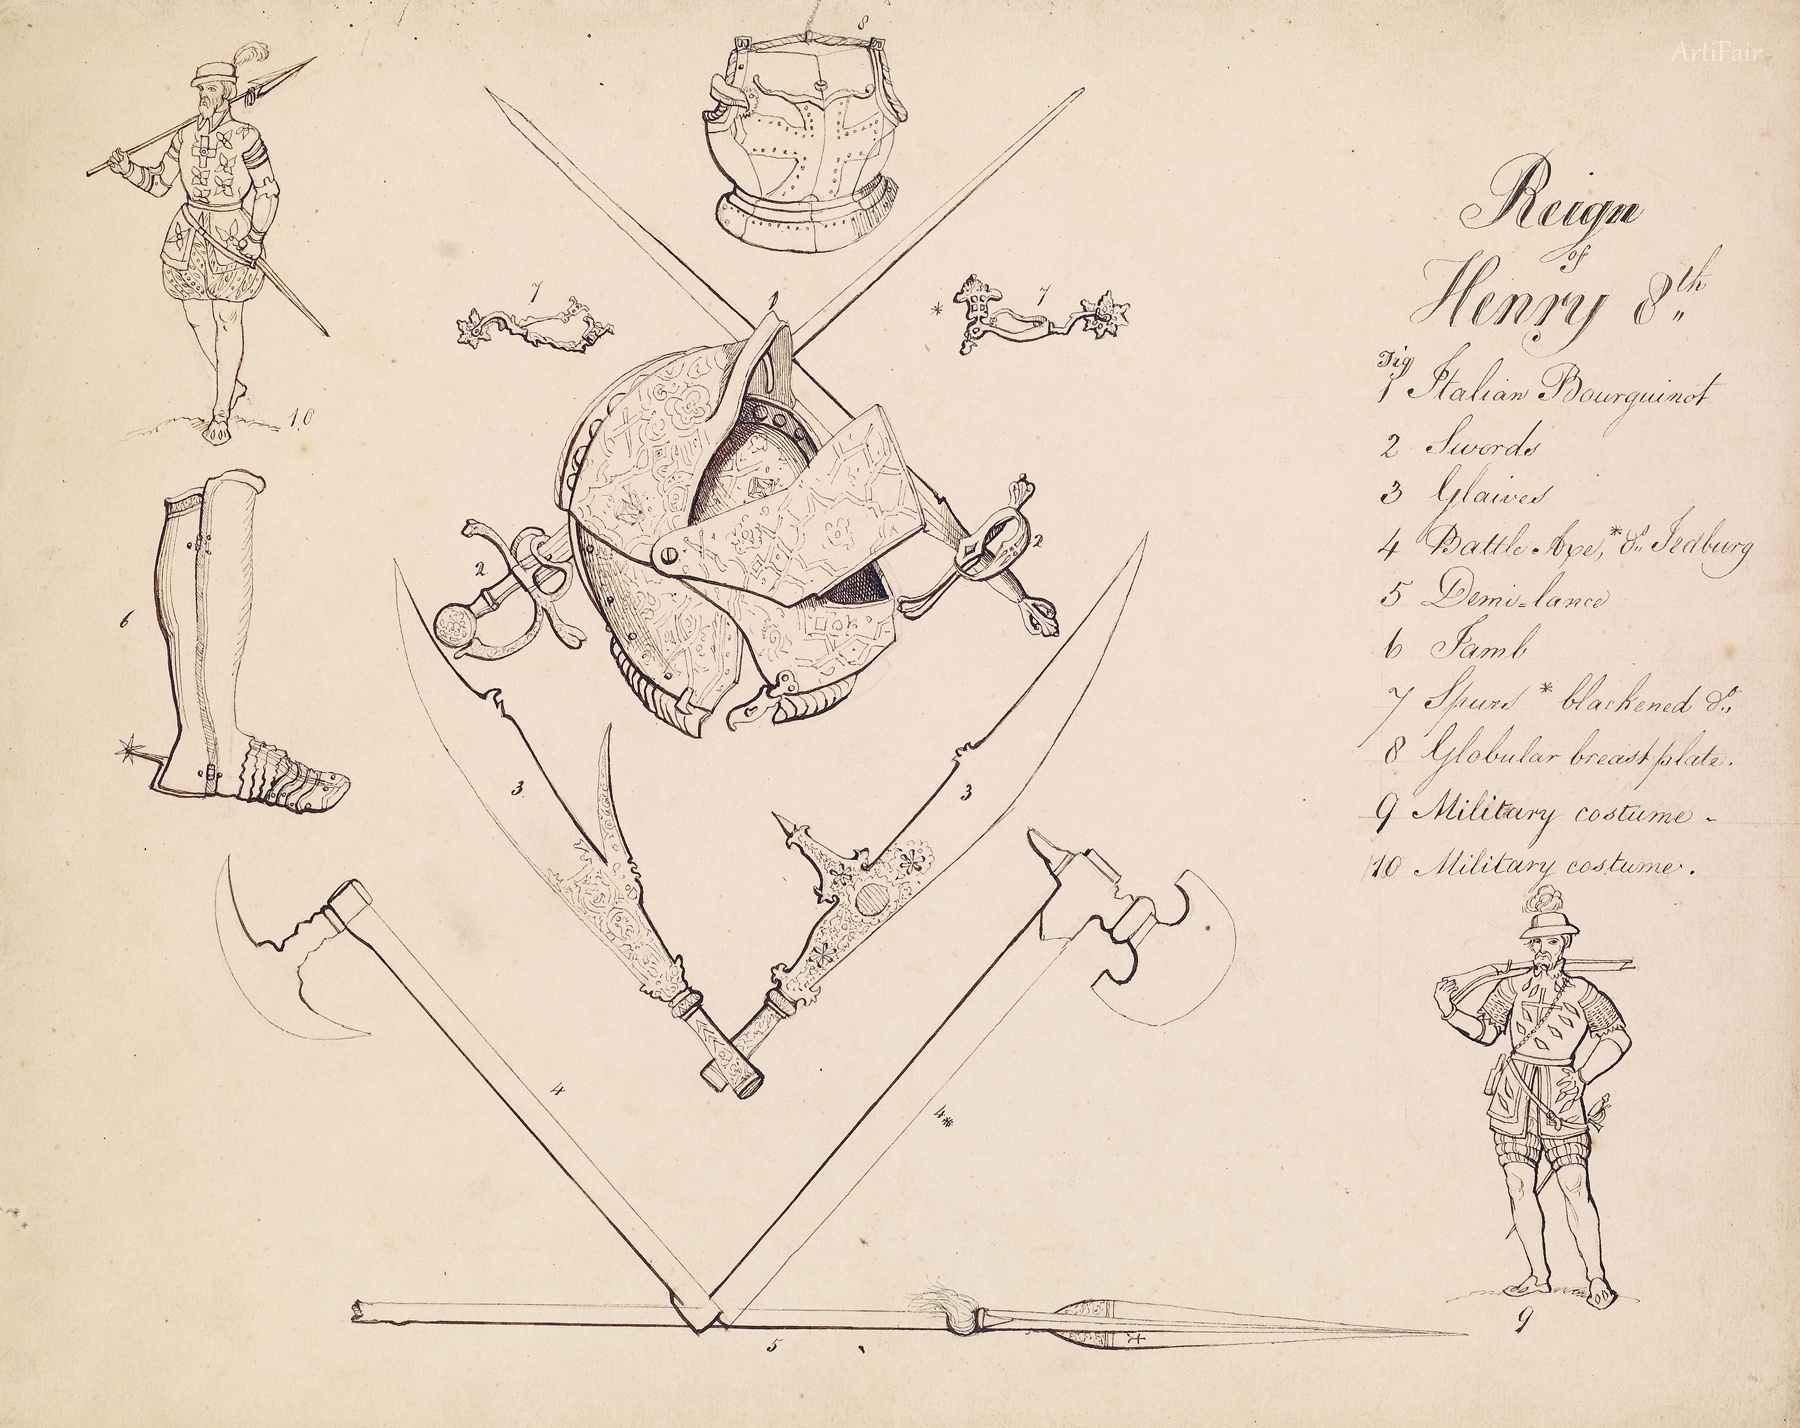 ArtiFair
8
1
7
* 7
10
2
2
6
3
3
4
4*
5
9
Reign
of
Henry 8th
Fig
1 Italian Bourguinot
2 Swords
3 Glaives
4 Battle Axe, * do. Jedburg
5 Demi-lance
6 Jamb
7 Spurs * blackened do.
8 Globular breast plate.
9 Military costume -
10 Military costume.